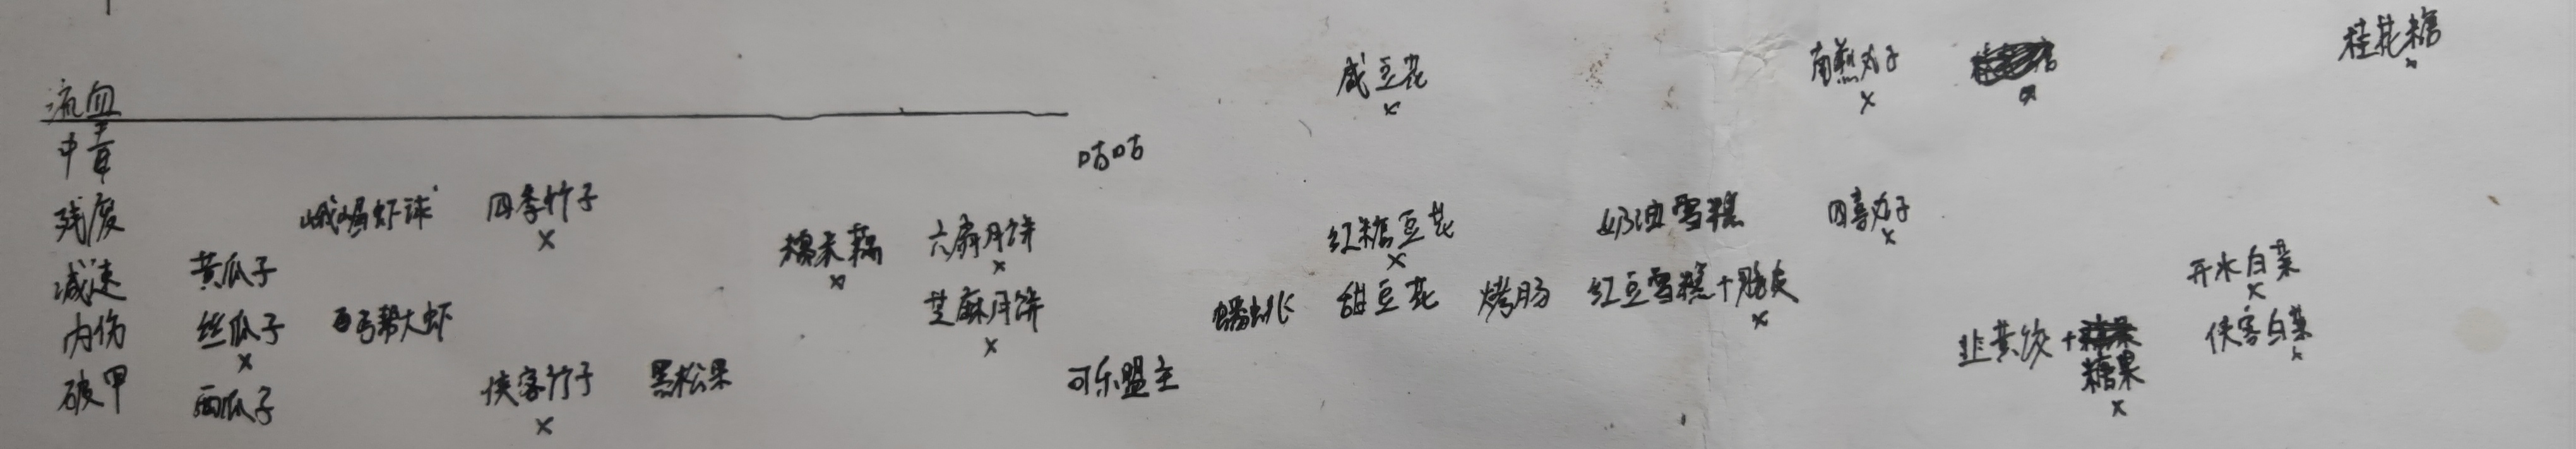 桂花糖
×
咸豆花
×
南煎丸子
×
流血
中毒
咕咕
残废 峨嵋虾球 四季竹子
×
糯米藕
×
六扇月饼
×
红糖豆花
×
奶油雪糕 四喜丸子
×
减速 黄瓜子
开水白菜
×
内伤 丝瓜子
×
丐帮大虾
芝麻月饼
×
蟠桃 甜豆花 烤肠 红豆雪糕+肠皮
×
韭黄饺+糖果
×
侠客白菜
×
破甲 西瓜子 侠客竹子
×
黑松果 可乐盟主